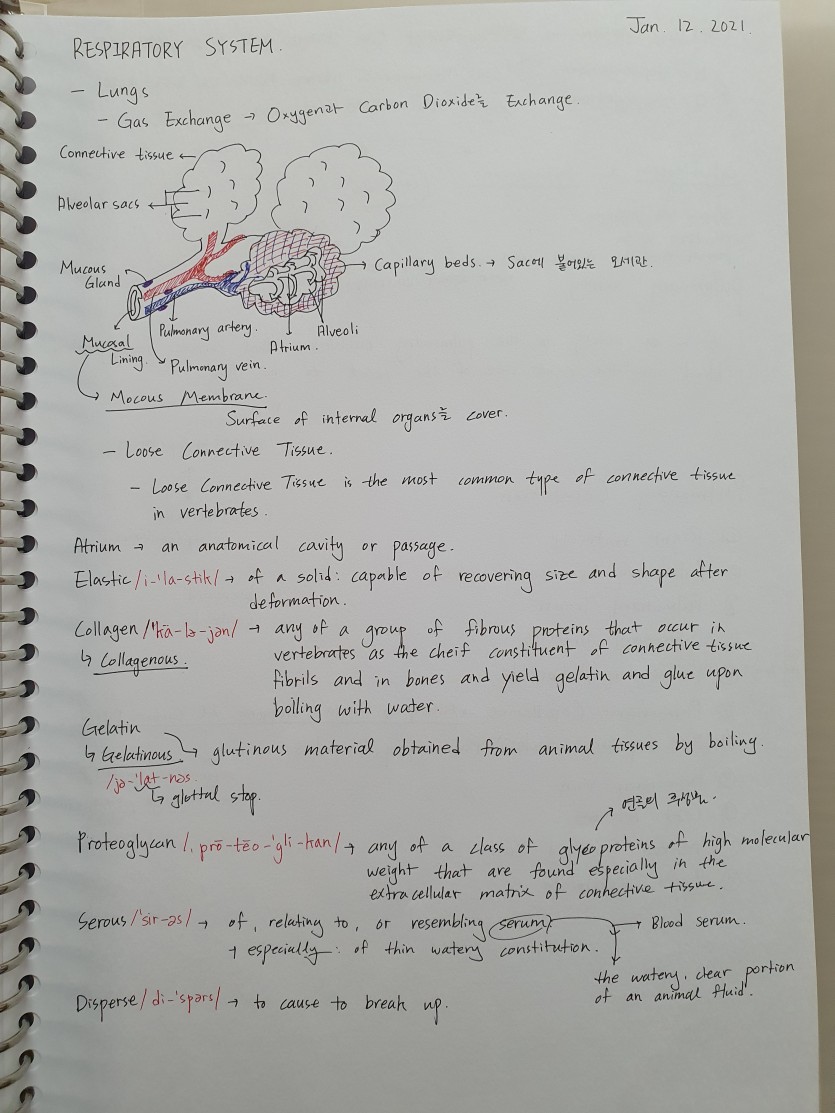 Jan. 12. 2021.
RESPIRATORY SYSTEM.
- Lungs
- Gas Exchange → Oxygen과 Carbon Dioxide를 Exchange.
Connective tissue ←
Alveolar sacs ←
Mucous
Gland
→ Capillary beds. → Sac에 붙어있는 모세관.
Pulmonary artery.
Alveoli
Atrium.
Mucosal
Lining.
Pulmonary vein.
→ Mocous Membrane.
Surface of internal organs를 cover.
- Loose Connective Tissue.
- Loose Connective Tissue is the most common type of connective tissue
in vertebrates.
Atrium → an anatomical cavity or passage.
Elastic /i-'la-stik/ → of a solid: capable of recovering size and shape after
deformation.
Collagen /'kä-lə-jən/ → any of a group of fibrous proteins that occur in
↳ Collagenous. vertebrates as the cheif constituent of connective tissue
fibrils and in bones and yield gelatin and glue upon
boiling with water.
Gelatin
↳ Gelatinous ↳ glutinous material obtained from animal tissues by boiling.
/jə-'lat-nəs.
↳ glottal stop.
연골의 주성분.
Proteoglycan /ˌprō-tēo-'glī-kan/ → any of a class of glycoproteins of high molecular
weight that are found especially in the
extracellular matrix of connective tissue.
Serous /'sir-əs/ → of, relating to, or resembling serum; → Blood serum.
+ especially: of thin watery constitution.
the watery, clear portion
of an animal fluid.
Disperse / di-'spərs/ → to cause to break up.